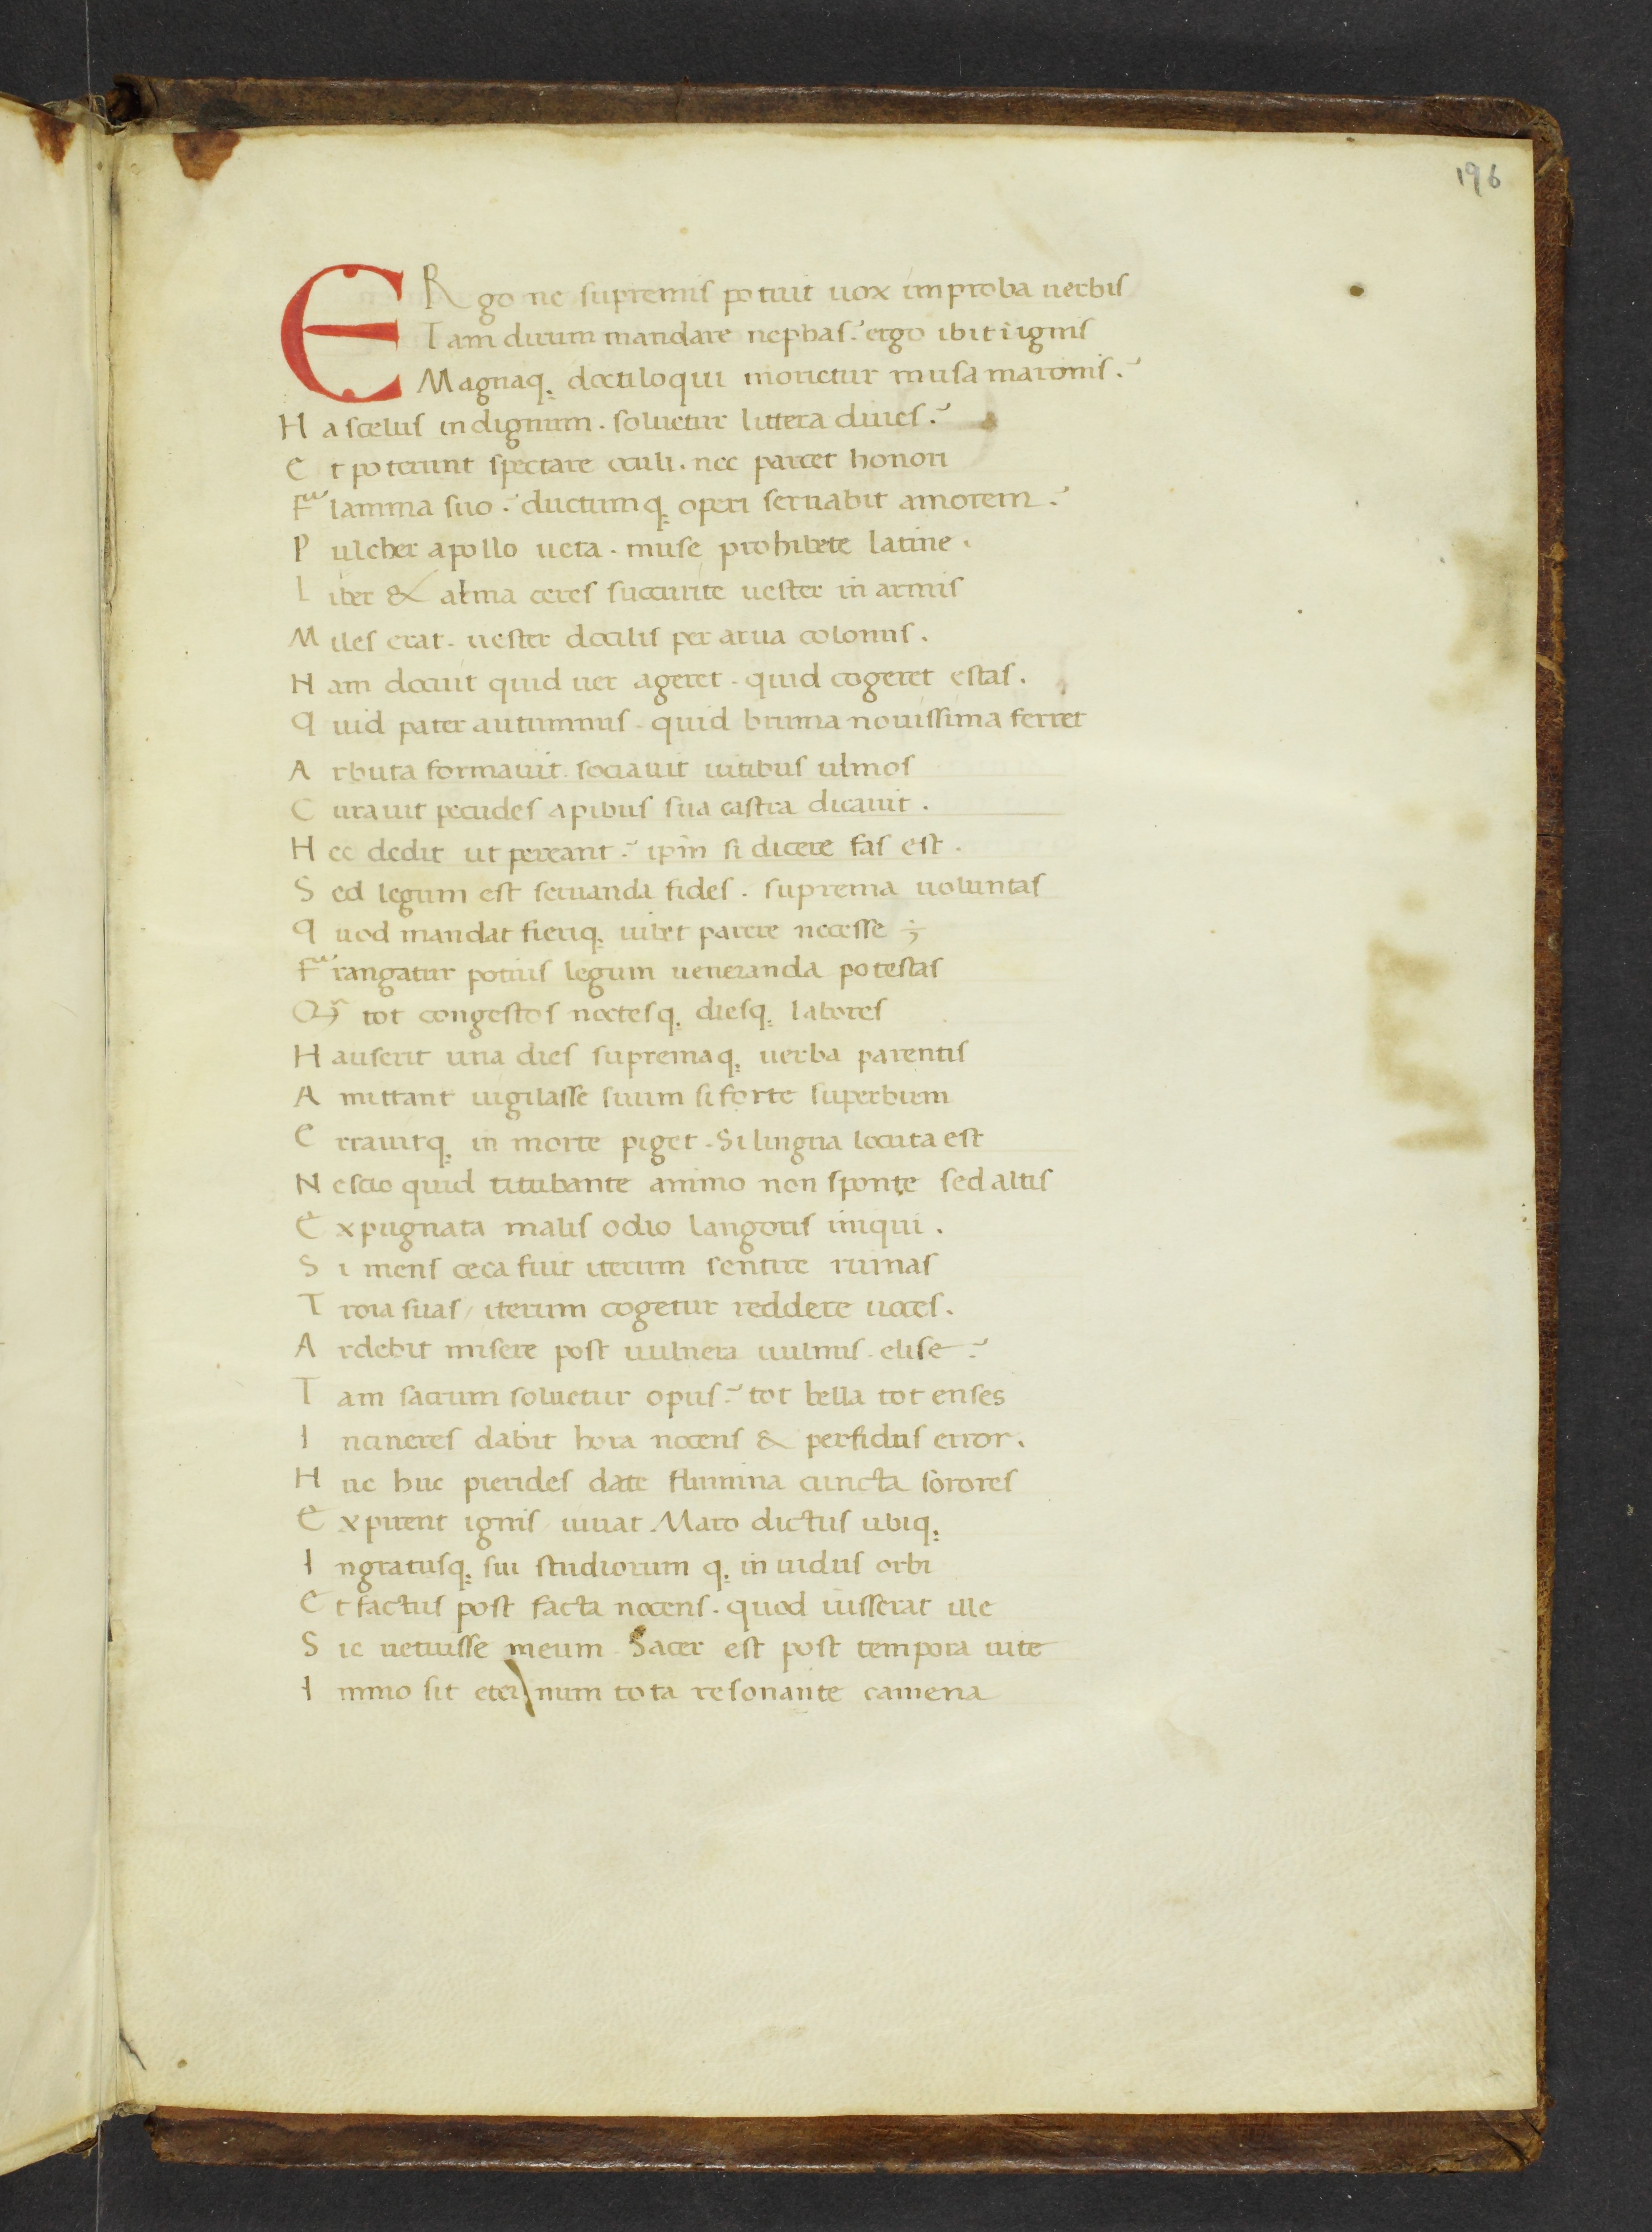 196
ERgo ne supremis potuit uox improba uerbis
Tam dirum mandare nephas? ergo ibit ī ignis
Magnaq; doctiloqui morietur musa maronis?
Ha scelus indignum. soluetur littera diues?
Et poterunt spectare oculi. nec parcet honori
Flamma suo? ductumq; operi seruabit amorem?
Pulcher apollo ueta. muse prohibete latine.
Liber & alma ceres succurite uester in armis
Miles erat. uester docilis per arua colonus.
Nam docuit quid uer ageret. quid cogeret estas.
Quid pater autumnus. quid bruma nouissima ferret
Arbuta formauit. sociauit uitibus ulmos
Curauit pecudes apibus sua castra dicauit.
Hec dedit ut pereant? ip̄m si dicere fas est.
Sed legum est seruanda fides. suprema uoluntas
Quod mandat fieriq; iubet parere necesse ÷
Frangatur potius legum ueneranda potestas
Qm̄ tot congestos noctesq; diesq; labores
Hauserit una dies supremaq; uerba parentis
Amittant uigilasse suum si forte superbum
Errauitq; in morte piget. Si lingua locuta est
Nescio quid titubante animo non sponte sed altis
Expugnata malis odio langoris iniqui.
Si mens ceca fuit iterum sentire ruinas
Troia suas / iterum cogetur reddere uoces.
Ardebit misere post uulnera uulnus elise?
Tam sacrum soluetur opus? tot bella tot enses
In cineres dabit hora nocens & perfidus error.
Huc huc pierides date flumina cuncta sorores
Expirent ignis / uiuat Maro dictus ubiq;
Ingratusq; sui studiorum q; inuidus orbi
Et factus post facta nocens. quod iusserat ille
Sic uetuisse meum. Sacer est post tempora uite
Immo sit eternum tota resonante camena